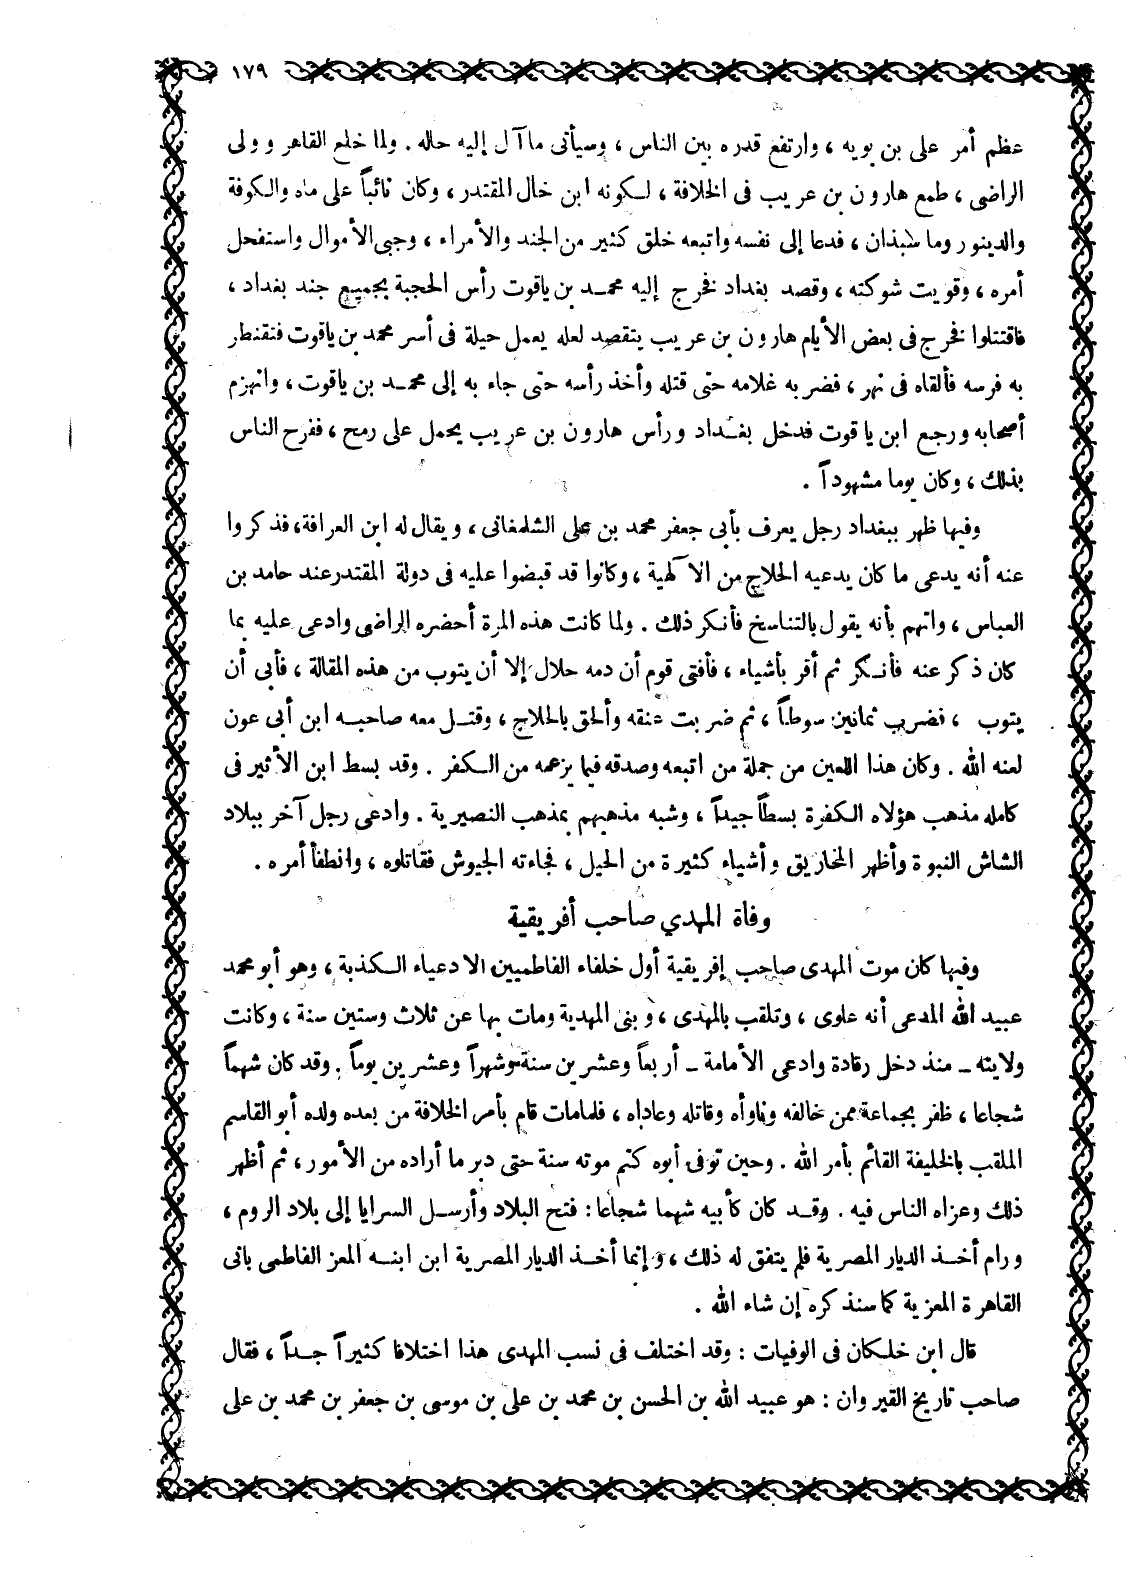 ١٧٩
عظم أمر على بن بويه ، وارتفع قدره بين الناس ، وسيأتى ما آل إليه حاله . ولما خلع القاهر وولى
الراضى ، طمع هارون بن عريب فى الخلافة ، لكونه ابن خال المقتدر ، وكان نائباً على ماه والكوفة
والدينور وماسبذان ، فدعا إلى نفسه واتبعه خلق كثير من الجند والأمراء ، وجبى الأموال واستفحل
أمره ، وقويت شوكته ، وقصد بغداد فخرج إليه محمد بن ياقوت رأس الحجبة بجميع جند بغداد ،
فاقتتلوا فخرج فى بعض الأيام هارون بن عريب يتقصد لعله يعمل حيلة فى أسر محمد بن ياقوت فتقنطر
به فرسه فألقاه فى نهر ، فضربه غلامه حتى قتله وأخذ رأسه حتى جاء به إلى محمد بن ياقوت ، وانهزم
أصحابه ورجع ابن ياقوت فدخل بغداد ورأس هارون بن عريب يحمل على رمح ، ففرح الناس
بذلك ، وكان يوما مشهوداً .
وفيها ظهر ببغداد رجل يعرف بأبى جعفر محمد بن على الشلمغانى ، ويقال له ابن العرافة ، فذكروا
عنه أنه يدعى ما كان يدعيه الحلاج من الالهية ، وكانوا قد قبضوا عليه فى دولة المقتدر عند حامد بن
العباس ، واتهم بأنه يقول بالتناسخ فأنكر ذلك . ولما كانت هذه المرة أحضره الراضى وادعى عليه بما
كان ذكر عنه فأنكر ثم أقر بأشياء ، فأفتى قوم أن دمه حلال إلا أن يتوب من هذه المقالة ، فأبى أن
يتوب ، فضرب ثمانين سوطاً ، ثم ضربت عنقه وألحق بالحلاج ، وقتل معه صاحبه ابن أبى عون
لعنه الله . وكان هذا اللعين من جملة من اتبعه وصدقه فيما يزعمه من الكفر . وقد بسط ابن الأثير فى
كامله مذهب هؤلاء الكفرة بسطاً جيداً ، وشبه مذهبهم بمذهب النصيرية . وادعى رجل آخر ببلاد
الشاش النبوة وأظهر المخاريق وأشياء كثيرة من الحيل ، فجاءته الجيوش فقاتلوه ، وانطفأ أمره .
وفاة المهدي صاحب أفريقية
وفيها كان موت المهدى صاحب إفريقية أول خلفاء الفاطميين الادعياء الكذبة ، وهو أبو محمد
عبيد الله المدعى أنه علوى ، وتلقب بالمهدى ، وبنى المهدية ومات بها عن ثلاث وستين سنة ، وكانت
ولايته ـ منذ دخل رقادة وادعى الأمامة ـ أربعاً وعشرين سنة وشهراً وعشرين يوماً . وقد كان شهماً
شجاعا ، ظفر بجماعة ممن خالفه وناوأه وقاتله وعاداه ، فلما مات قام بأمر الخلافة من بعده ولده أبو القاسم
الملقب بالخليفة القائم بأمر الله . وحين توفى أبوه كتم موته سنة حتى دبر ما أراده من الأمور ، ثم أظهر
ذلك وعزاه الناس فيه . وقد كان كأبيه شهما شجاعا : فتح البلاد وأرسل السرايا إلى بلاد الروم ،
ورام أخذ الديار المصرية فلم يتفق له ذلك ، وإنما أخذ الديار المصرية ابن ابنه المعز الفاطمى بانى
القاهرة المعزية كما سنذكره إن شاء الله .
قال ابن خلكان فى الوفيات : وقد اختلف فى نسب المهدى هذا اختلافا كثيراً جداً ، فقال
صاحب تاريخ القيروان : هو عبيد الله بن الحسن بن محمد بن على بن موسى بن جعفر بن محمد بن على